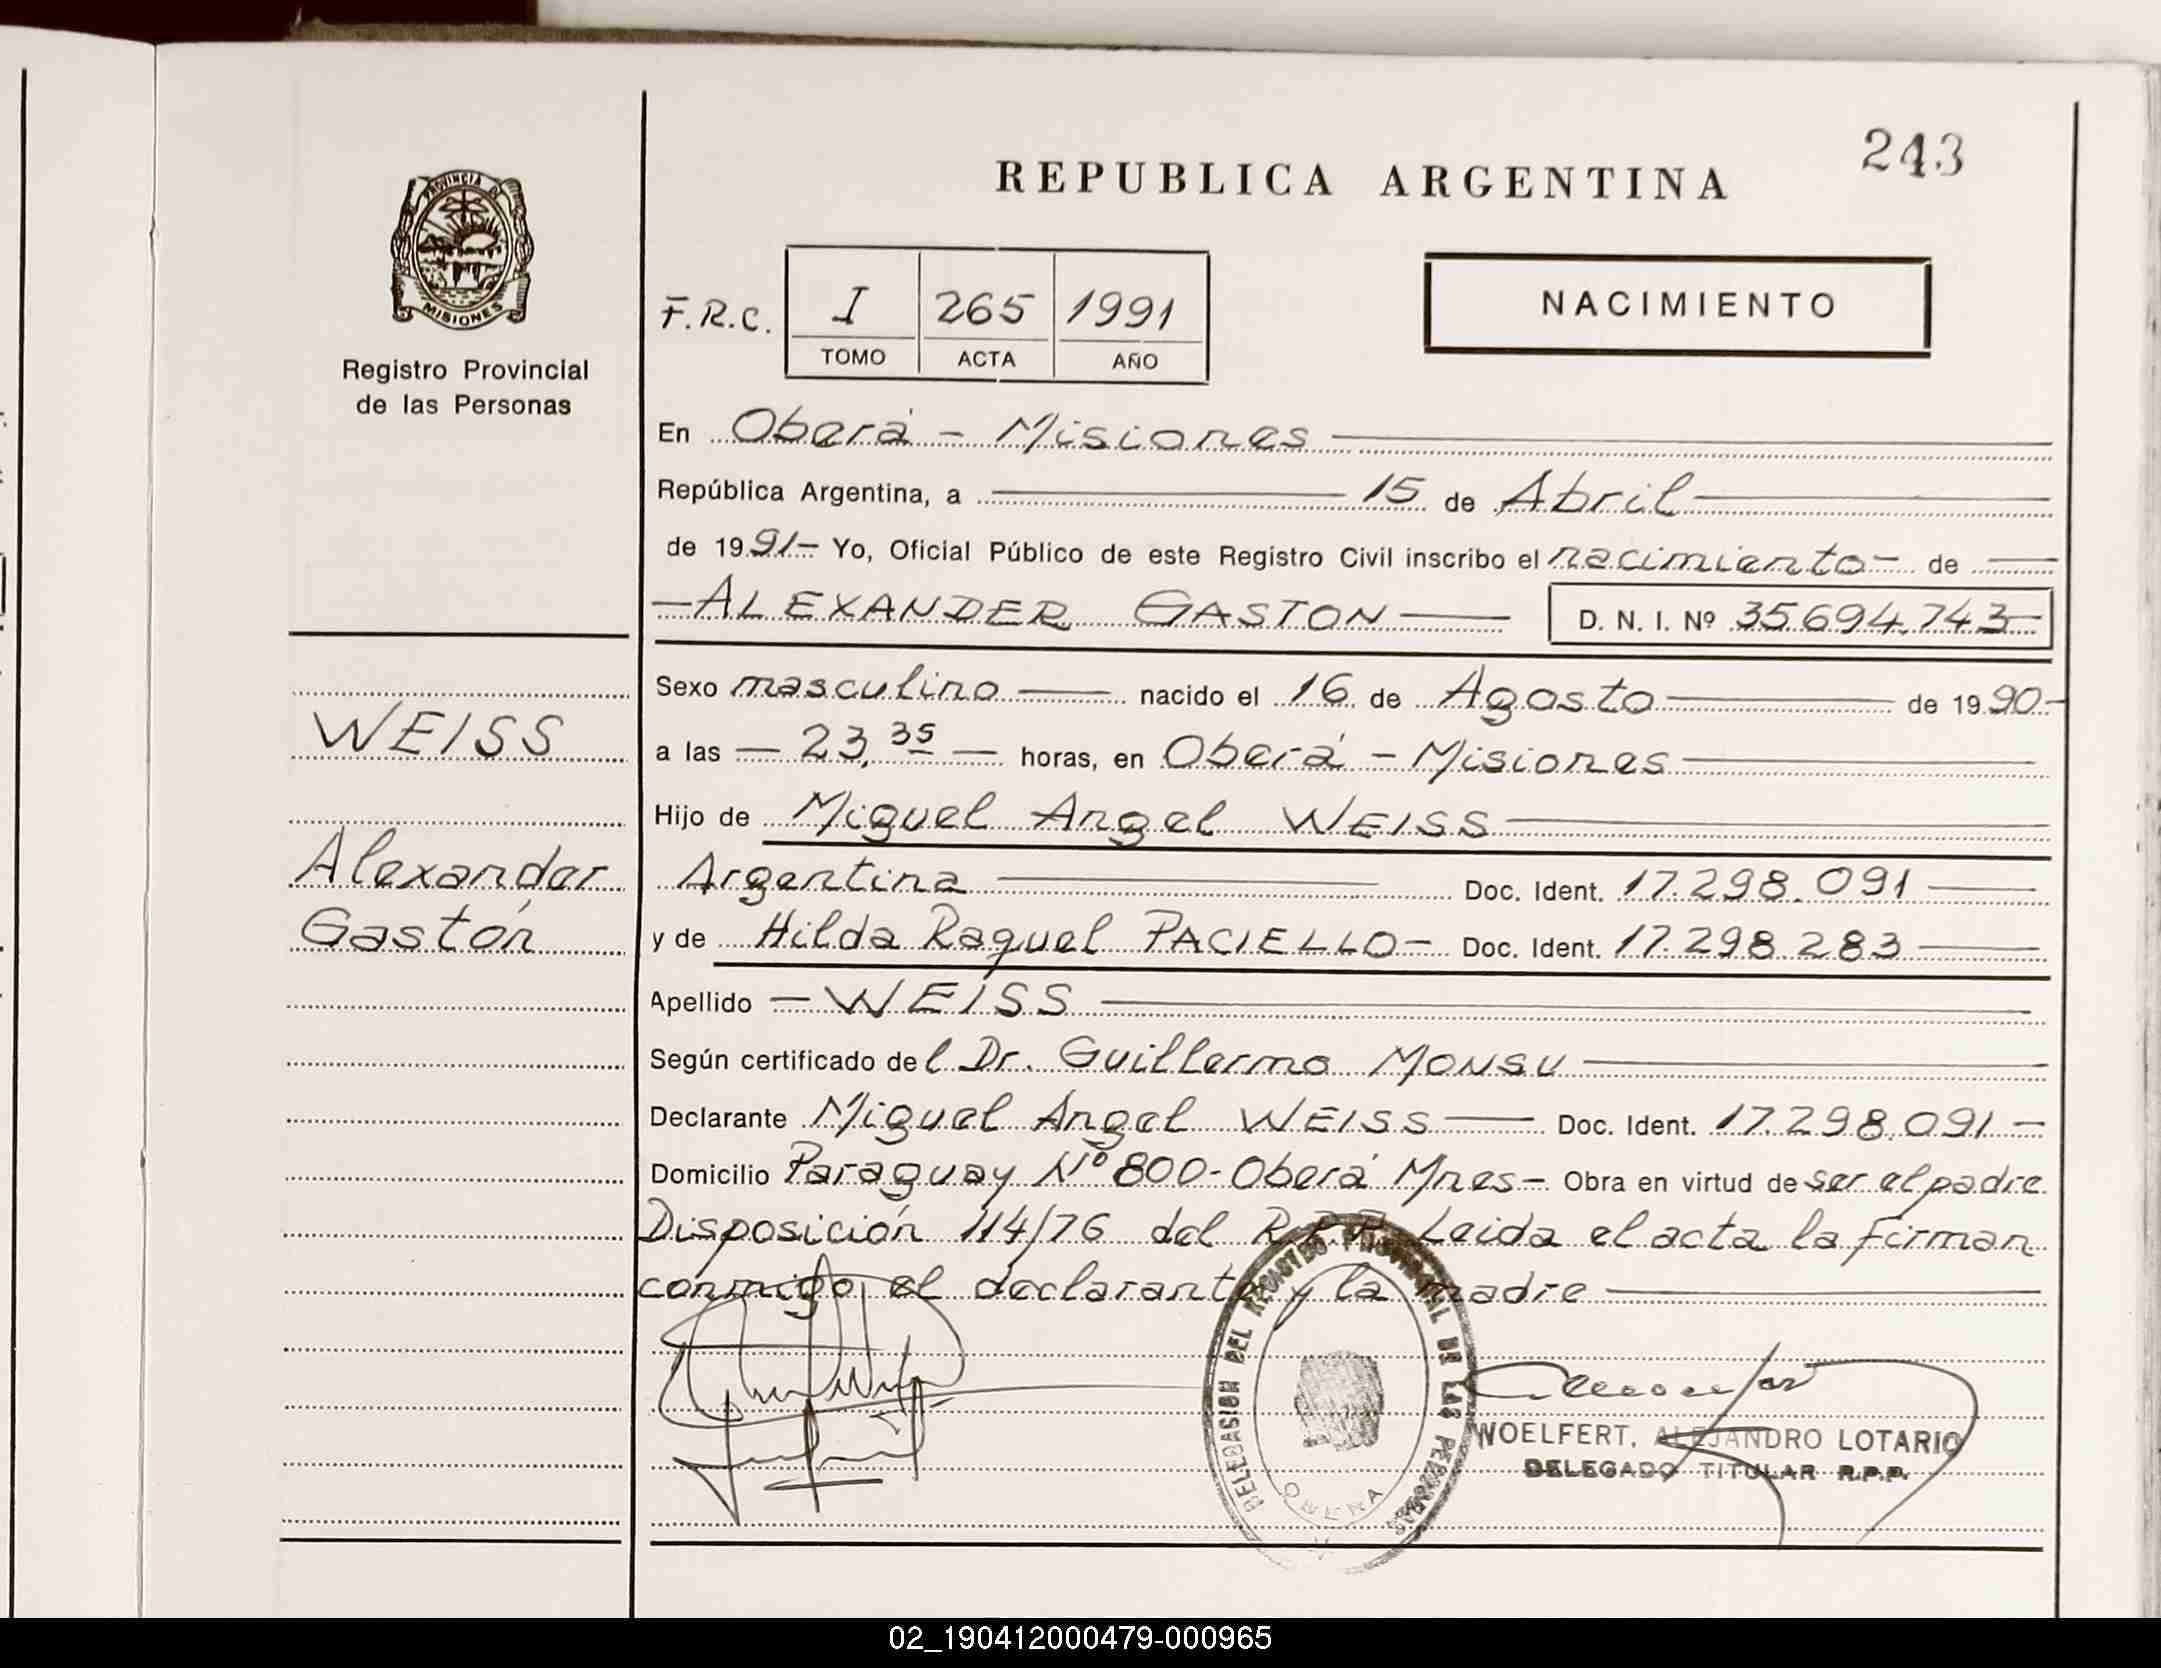 243
REPUBLICA ARGENTINA
PROVINCIA DE
MISIONES
Registro Provincial
de las Personas
F.R.C. I 265 1991
TOMO ACTA AÑO
NACIMIENTO
En Oberá - Misiones
República Argentina, a 15 de Abril
de 1991- Yo, Oficial Público de este Registro Civil inscribo el nacimiento- de
-ALEXANDER GASTON D. N. I. Nº 35.694.743
Sexo masculino nacido el 16 de Agosto de 1990-
WEISS
a las - 23,35 - horas, en Oberá - Misiones
Hijo de Miguel Angel WEISS
Alexander
Gastón
Argentina Doc. Ident. 17.298.091
y de Hilda Raquel PACIELLO- Doc. Ident. 17.298.283
Apellido - WEISS
Según certificado del Dr. Guillermo MONSU
Declarante Miguel Angel WEISS Doc. Ident. 17.298.091 -
Domicilio Paraguay Nº 800- Oberá Mnes- Obra en virtud de ser el padre
Disposición 114/76 del R.P.P. Leida el acta la firman
conmigo el declarante y la madre
DELEGASION DEL REGISTRO PROVINCIAL DE LAS PERSONAS
WOELFERT, ALEJANDRO LOTARIO
DELEGADO TITULAR R.P.P.
02_190412000479-000965